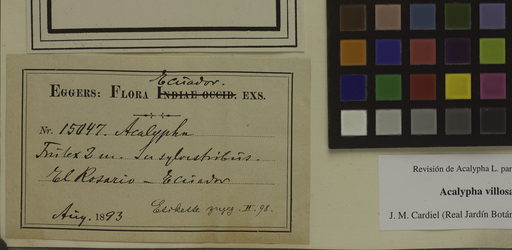 Ecuador.
EGGERS: FLORA INDIAE OCCID. EXS.
Nr. 15047. Acalypha
Frutex 2 m. In sylvestribus.
El Rosario – Ecuador
Aug. 1893
Revisión de Acalypha L. par
Acalypha villosa
J. M. Cardiel (Real Jardín Botán